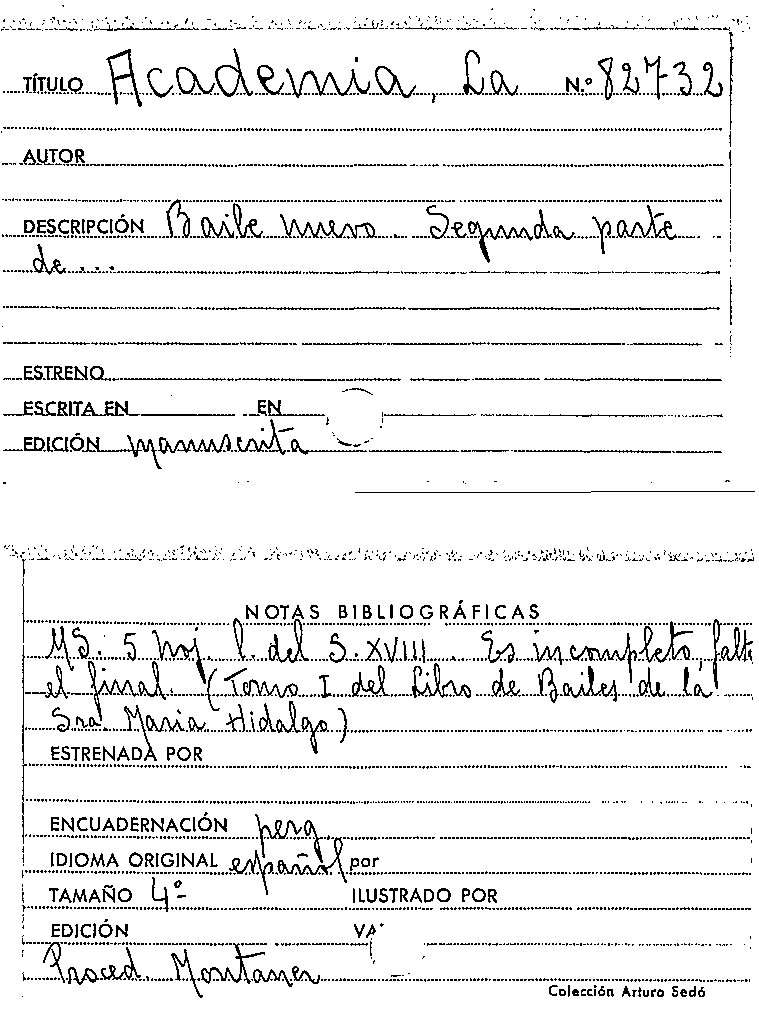 TÍTULO Academia, La N.º 82732
AUTOR
DESCRIPCIÓN Baile nuevo. Segunda parte
de...
ESTRENO
ESCRITA EN EN
EDICIÓN manuscrita
NOTAS BIBLIOGRÁFICAS
MS. 5 hoj. l. del S. XVIII. Es incompleto, falta
el final. (Tomo I del Libro de Bailes de la
Sra. Maria Hidalgo)
ESTRENADA POR
ENCUADERNACIÓN perg.
IDIOMA ORIGINAL español por
TAMAÑO 4º ILUSTRADO POR
EDICIÓN
Proced. Montaner
Colección Arturo Sedó